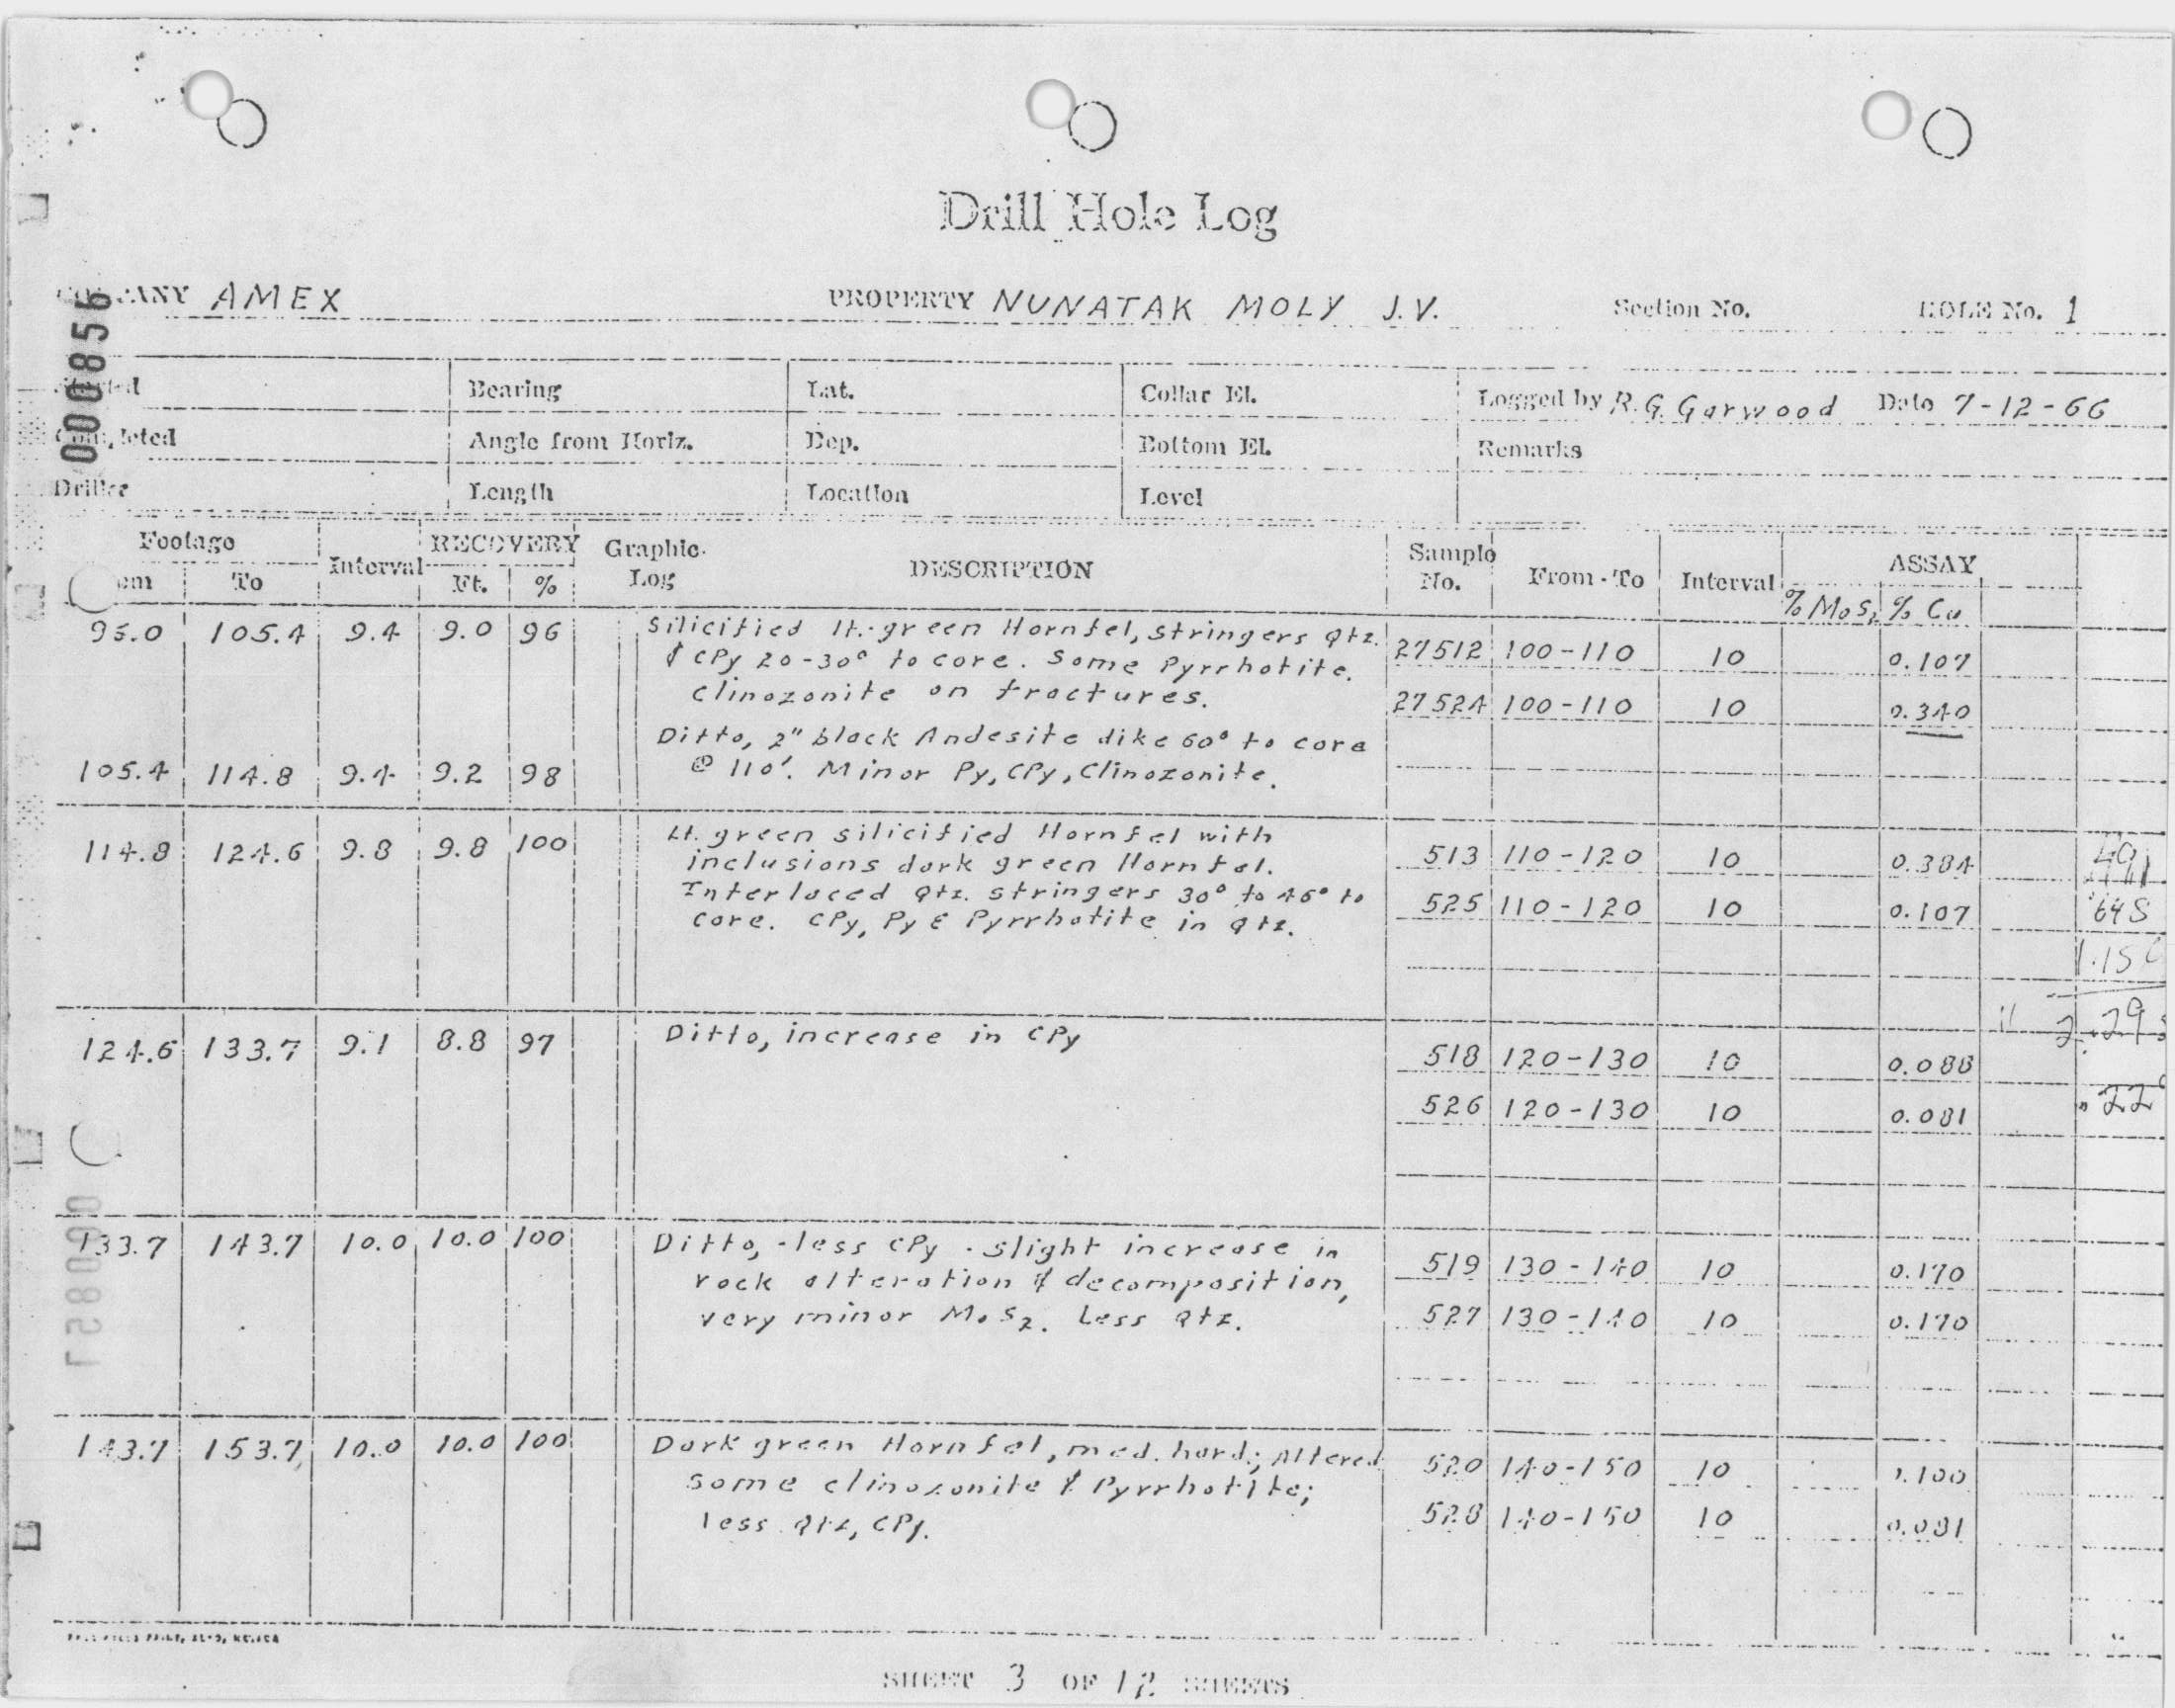 Drill Hole Log
COMPANY AMEX PROPERTY NUNATAK MOLY J.V. Section No. HOLE No. 1
000856
Bearing Lat. Collar El. Logged by R.G. Garwood Date 7-12-66
Completed Angle from Horiz. Dep. Bottom El. Remarks
Driller Length Location Level
Footage Interval RECOVERY Graphic Log DESCRIPTION Sample No. From-To Interval ASSAY
To Ft. % % MoS2 % Cu
105.4 9.4 9.0 96 Silicified lt. green Hornfel, stringers qtz.
& CPy 20-30° to core. Some Pyrrhotite. 27512 100-110 10 0.107
Clinozonite on fractures. 27524 100-110 10 0.340
Ditto, 2" black Andesite dike 60° to core
105.4 114.8 9.4 9.2 98 @ 110'. Minor Py, CPy, Clinozonite.
114.8 124.6 9.8 9.8 100 Lt. green silicified Hornfel with
inclusions dark green Hornfel. 513 110-120 10 0.384
Interlaced qtz. stringers 30° to 45° to
core. CPy, Py & Pyrrhotite in qtz. 525 110-120 10 0.107 645
124.6 133.7 9.1 8.8 97 Ditto, increase in CPy
518 120-130 10 0.088
526 120-130 10 0.081 .22
133.7 143.7 10.0 10.0 100 Ditto, -less CPy. Slight increase in
rock alteration & decomposition, 519 130-140 10 0.170
very minor MoS2. Less qtz. 527 130-140 10 0.170
143.7 153.7 10.0 10.0 100 Dark green Hornfel, med. hard; Altered
some clinozonite & Pyrrhotite; 520 140-150 10 .100
less qtz, CPy. 528 140-150 10 0.081
SHEET 3 OF 12 SHEETS